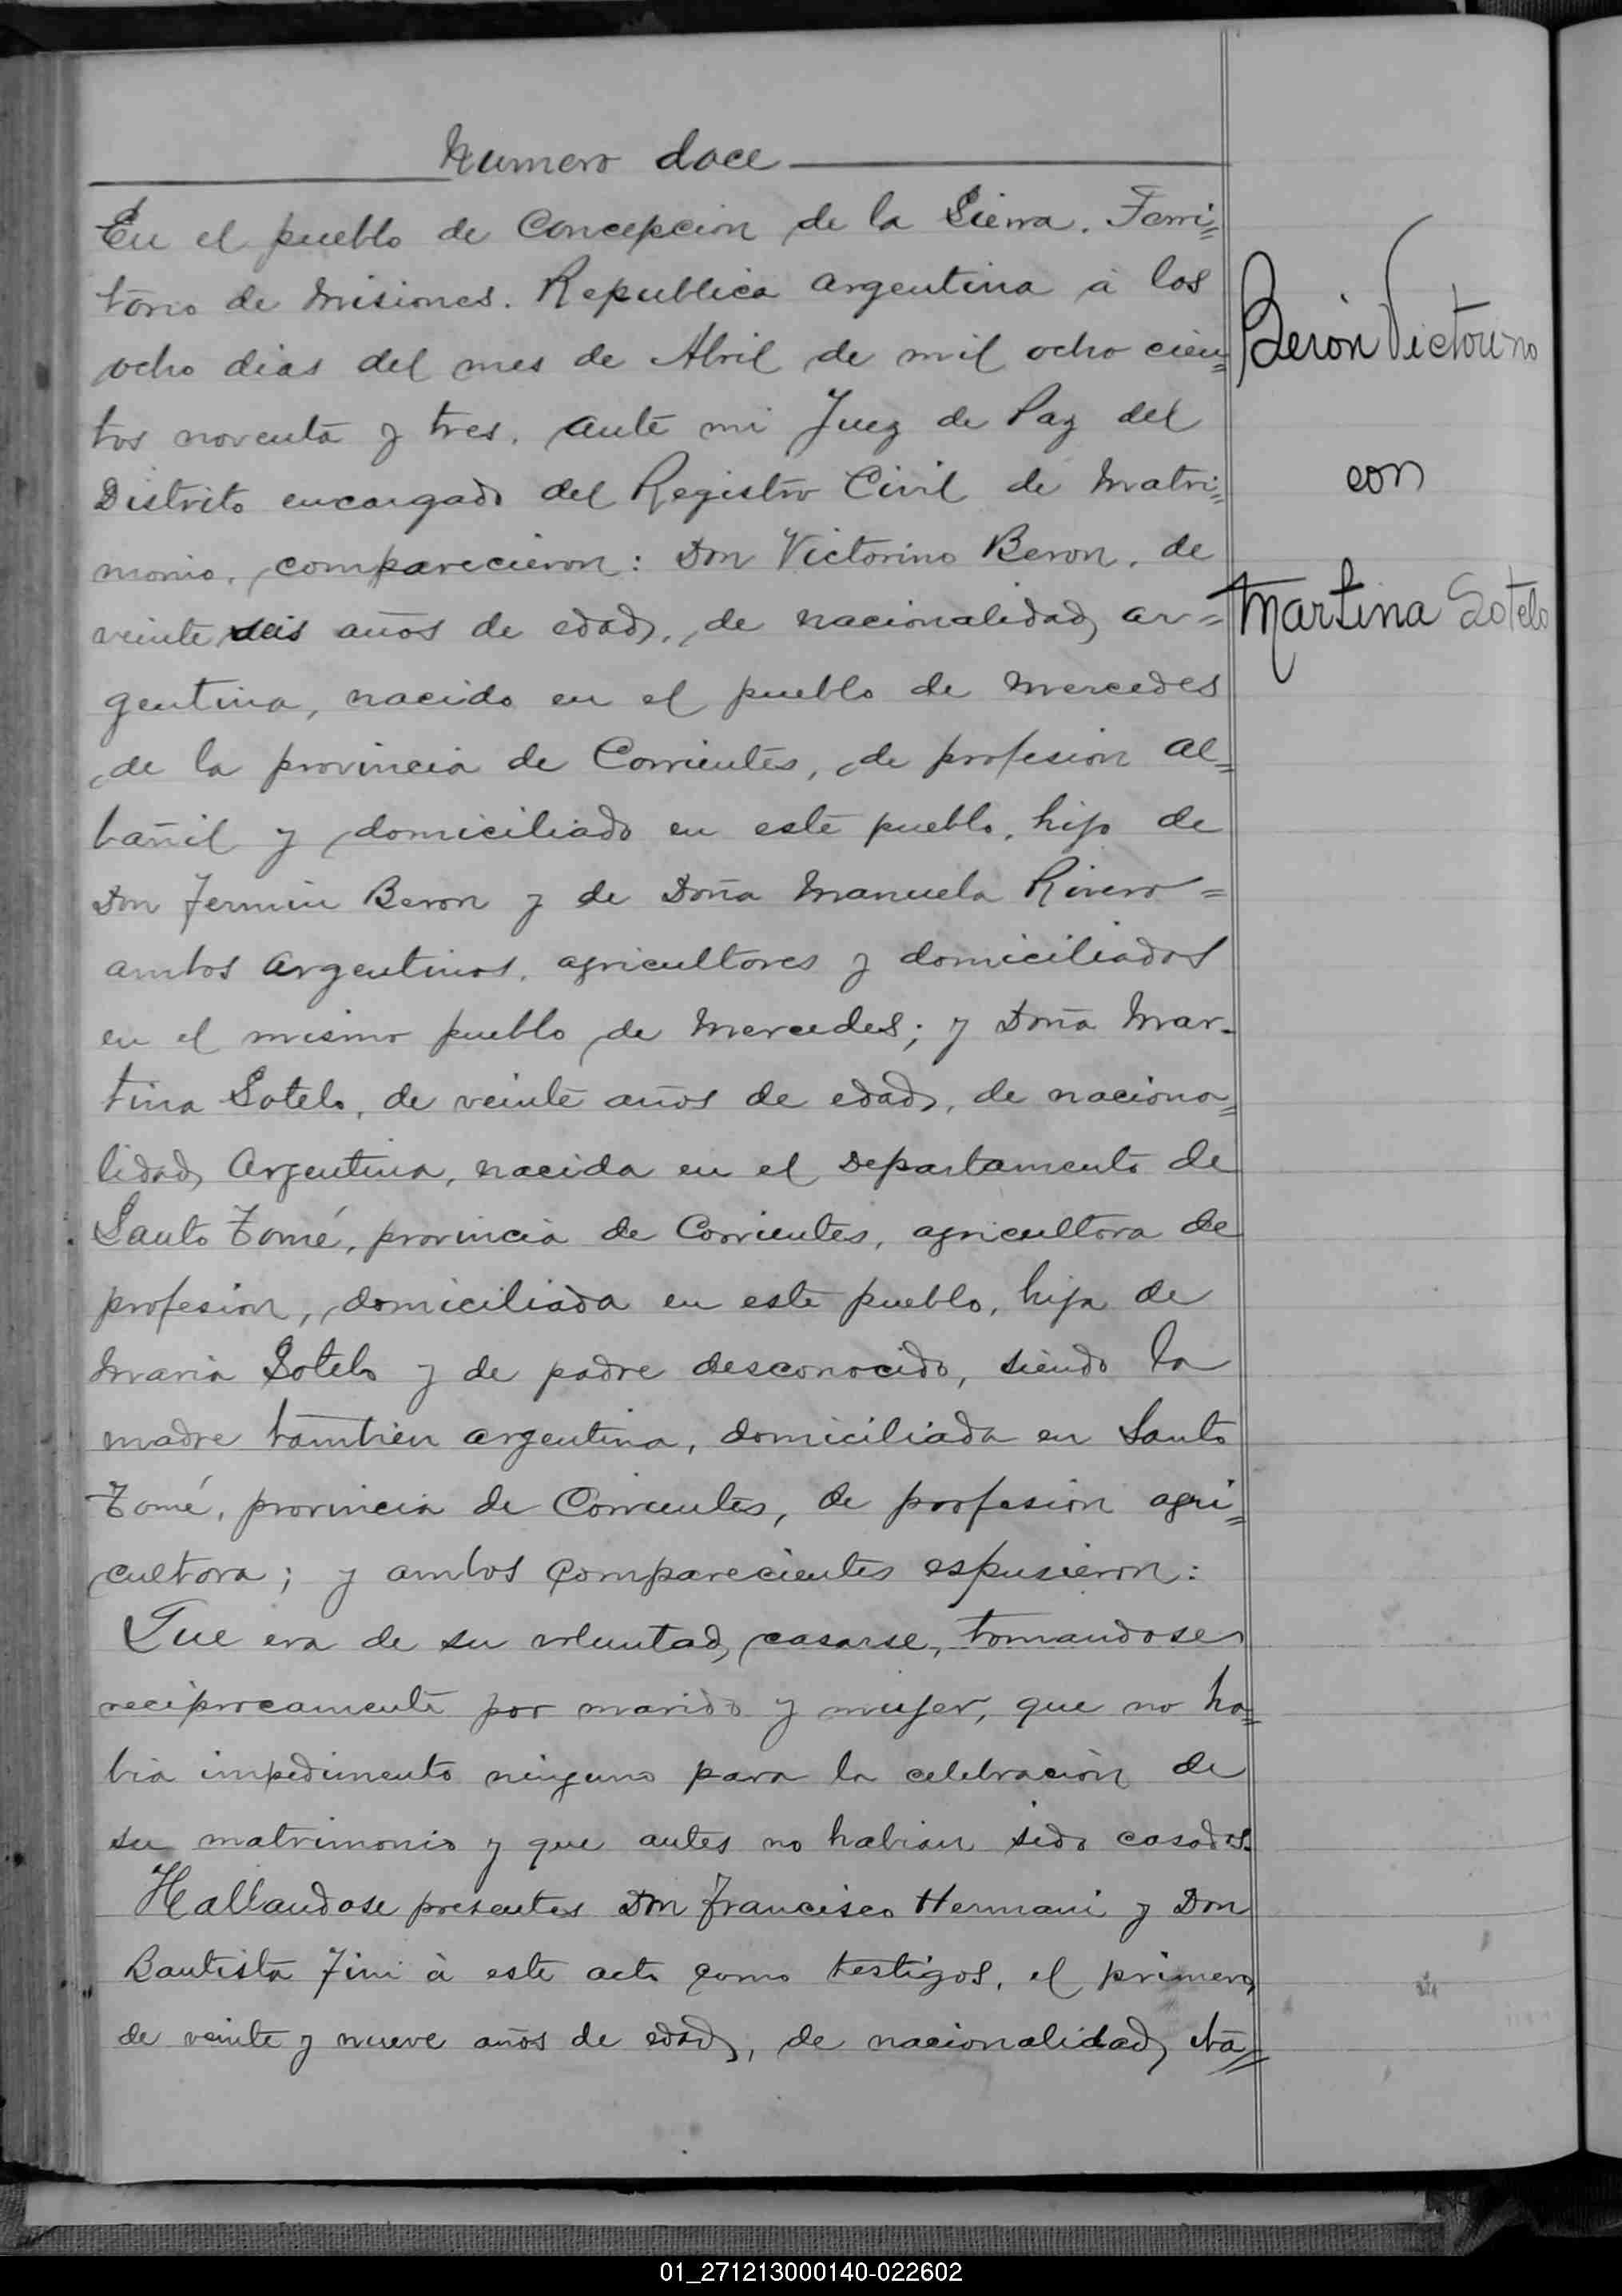 Numero doce
En el pueblo de Concepcion de la Sierra. Terri=
torio de Misiones. Republica Argentina á los
ocho dias del mes de Abril de mil ocho cien=
tos noventa y tres. ante mi Juez de Paz del
Distrito encargado del Registro Civil de Matri=
monio, comparecieron: Don Victorino Beron, de
veinte seis años de edad, de nacionalidad ar=
gentina, nacido en el pueblo de Mercedes
de la provincia de Corrientes, de profesion al=
bañil y domiciliado en este pueblo, hijo de
Don Fermin Beron y de Doña Manuela Rivero=
ambos Argentinos, agricultores y domiciliados
en el mismo pueblo de Mercedes; y Doña Mar-
tina Sotelo, de veinte años de edad, de naciona=
lidad Argentina, nacida en el Departamento de
Santo Tomé, provincia de Corrientes, agricultora de
profesion, domiciliada en este pueblo, hija de
Maria Sotelo y de padre desconocido, siendo la
madre tambien argentina, domiciliada en Santo
Tomé, provincia de Corrientes, de profesion agri=
cultora; y ambos comparecientes espusieron:
Que era de su voluntad casarse, tomandose
reciprocamente por marido y mujer, que no ha=
bia impedimento ninguno para la celebracion de
su matrimonio y que antes no habian sido casados.
Hallandose presentes Don Francisco Hermani y Don
Bautista Fini à este acto como testigos, el primero
de veinte y nueve años de edad, de nacionalidad ita=
Beron Victorino
con
Martina Sotelo
01_271213000140-022602